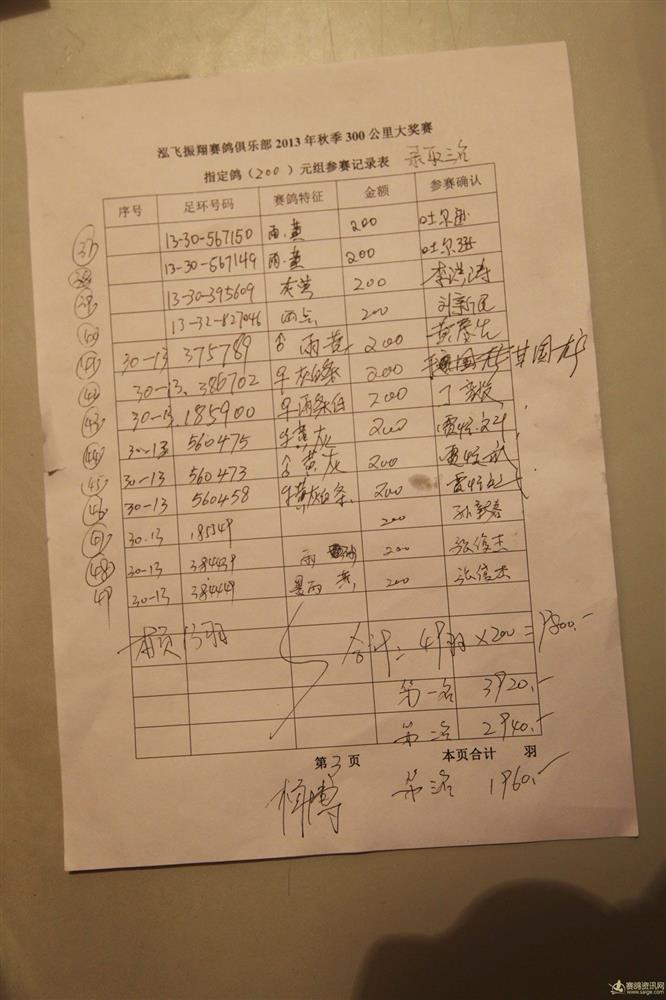 泓飞振翔赛鸽俱乐部2013年秋季300公里大奖赛
指定鸽（200）元组参赛记录表 录取三名
序号 足环号码 赛鸽特征 金额 参赛确认
37 13-30-567150 雨.黄 200 吐尔逊
38 13-30-567149 雨.黄 200 吐尔逊
39 13-30-395609 灰黄 200 李洪涛
40 13-32-827046 雨点 200 刘新民
41 30-13 375789 ♂ 雨黄 200
42 30-13. 386702 ♀灰白条 200
43 30-13 .185900 ♀雨条白 200
44 30-13 560475 ♀黄灰 200
45 30-13 560473 ♂黄灰 200
46 30-13 560458 ♀黄灰白条. 200
47 30.13 .185549 200
48 30-13 384439 雨 200 张俊杰
49 30-13 384449 雨黄 200 张俊杰
本页13羽 合计: 49羽×200=9800.-
第一名 3920.-
第二名 2940.-
第3页 本页合计 羽
第三名 1960.-
赛鸽资讯网
www.saige.com